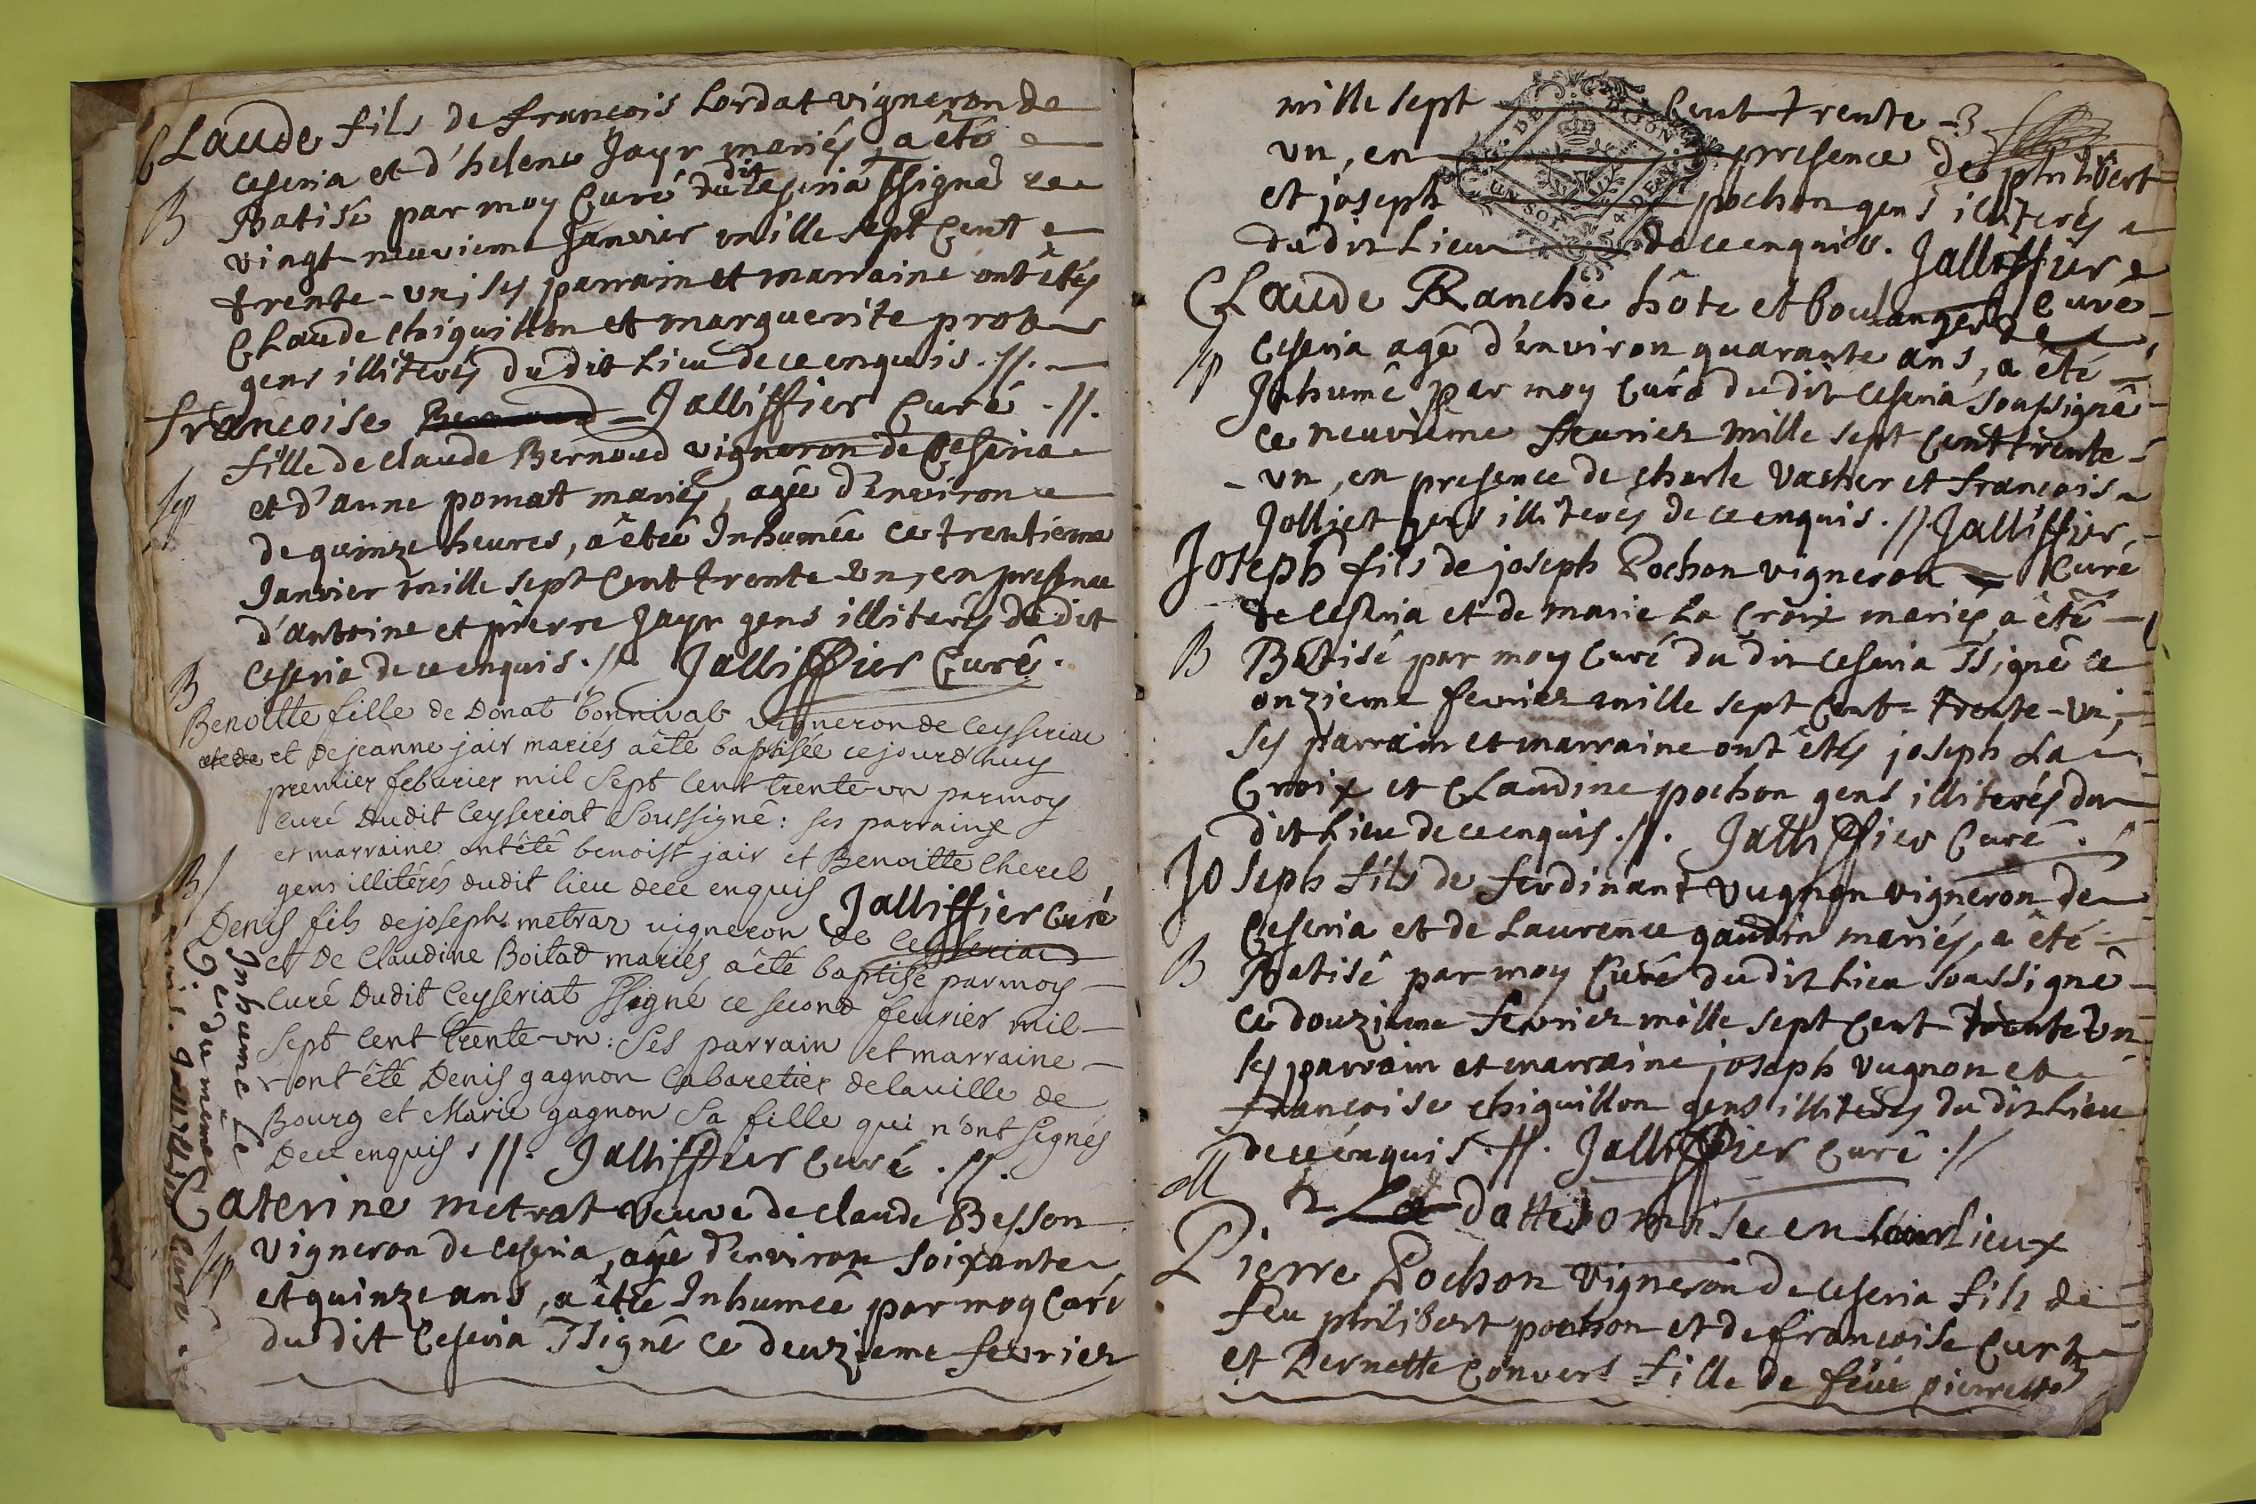 Claude fils de françois Lordat vigneron de
ceseria et d'helene Jayr mariés, a êtê
B
Batisé par moy Curé du dit ceseria ssigné ce
vingt-neuvieme Janvier mille sept Cent
trente-un; ses parrain et marraine ont êtés
Claude chiquillon et marguerite prob
gens illiterés du dit Lieu de ce enquis .//.
françoise Bernoud Jalliffier Curé .//.
fille de claude Bernoud vigneron de Ceseria
Sp
et d'anne pomat mariés, agée d'environ
de quinze heures, a êteê Inhumêe ce trentieme
Janvier mille sept Cent trente-un, en presence
d'antoine et pierre Jayr gens illiterés du dit
Ceseria de ce enquis .//. Jalliffier Curé.
B
Benoitte fille de Donat bonnivat vigneron de Ceyseriac
et de et de jeanne jair mariés a êtê baptisée ce jourd'huy
premier feburier mil sept Cent trente-un par moy
Curé Dudit Ceyseriat Soussigné : ses parrains
et marraine ont êtê benoist jair et Benoitte Cherel
gens illitérés dudit lieu de ce enquis Jalliffier Curé
B/
Denis fils de joseph metraz vigneron de Ceyseriac
et De Claudine Boitat mariés a êtê baptisé par moy
Curé Dudit Ceyseriat ssigné ce second feurier mil
Sept Cent trente-un : Ses parrain et marraine
ont êtê Denis gagnon Cabaretier de la ville de
Bourg et Marie gagnon Sa fille qui n'ont signés
De ce enquis .//. Jalliffier Curé .//.
Inhumé le
du même
mois. Jalliffier Curé
Caterine metrat Veuve de claude Besson
Sp
Vigneron de ceseria, agée d'environ soixante
et quinze ans, a êtêe Inhumêe par moy Curé
du dit Ceseria ssigné ce deuzieme fevrier
mille sept Cent trente
un, en presence de philibert
et joseph pochon gens illiterés
du dit Lieu de ce enquis. Jalliffier
Curé
Claude Ranche hôte et boulanger de
Sp
Ceseria agé d'environ quarante ans, a êtê
Inhumê par moy Curé du dit Ceseria soussigné
ce neuvieme fevrier mille sept Cent trente
- un, en presence de charle Vastier et françois
Jolliet gens illiterés de ce enquis .// Jalliffier
Curé
Joseph fils de joseph Pochon vigneron
de Ceseria et de marie La Croix mariés, a êtê
B
Batisé par moy Curé du dit ceseria ssigné ce
onzieme fevrier mille sept Cent trente-un,
ses parrain et marraine ont êtés joseph La
Croix et Claudine pochon gens illiterés du
dit Lieu de ce enquis .//. Jalliffier Curé .
Joseph fils de ferdinant Vugnon vigneron de
Ceseria et de Laurence gaudin mariés, a êté
B
Batisé par moy Curé du dit Lieu soussigné
ce douzieme fevrier mille sept Cent trente un
ses parrain et marraine joseph vugnon et
françoise chiquillon gens illiterés du dit Lieu
de ce enquis .//. Jalliffier Curé .//
M
La datte omise en lieux
Pierre Pochon vigneron de ceseria fils de
feu philibert pochon et de françoise Curt
et Pernette Convers fille de feüe pierrette